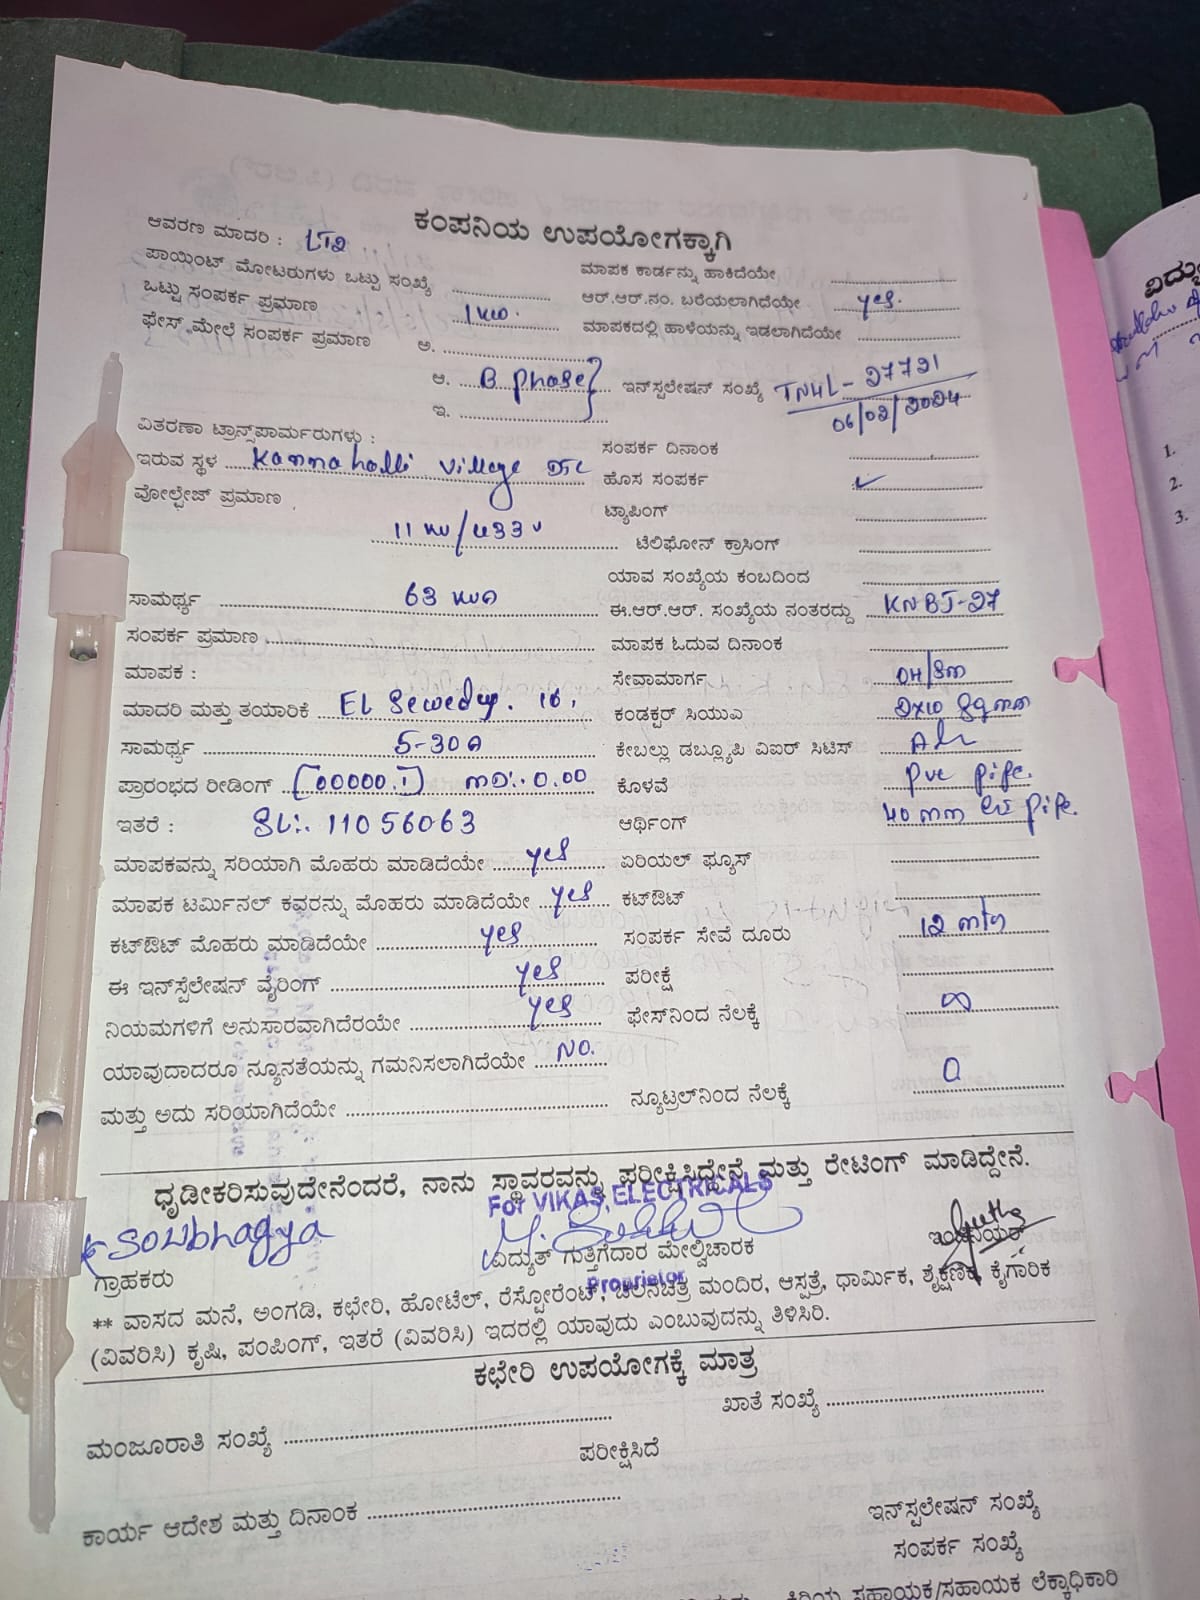 ಕಂಪನಿಯ ಉಪಯೋಗಕ್ಕಾಗಿ
ಆವರಣ ಮಾದರಿ : LT2
ಪಾಯಿಂಟ್ ಮೋಟರುಗಳು ಒಟ್ಟು ಸಂಖ್ಯೆ
ಮಾಪಕ ಕಾರ್ಡನ್ನು ಹಾಕಿದೆಯೇ
ಒಟ್ಟು ಸಂಪರ್ಕ ಪ್ರಮಾಣ 1 KW.
ಆರ್.ಆರ್.ನಂ. ಬರೆಯಲಾಗಿದೆಯೇ yes.
ಫೇಸ್ ಮೇಲೆ ಸಂಪರ್ಕ ಪ್ರಮಾಣ ಅ.
ಮಾಪಕದಲ್ಲಿ ಹಾಳೆಯನ್ನು ಇಡಲಾಗಿದೆಯೇ
ಆ. B phase
ಇನ್‌ಸ್ಪಲೇಷನ್ ಸಂಖ್ಯೆ TN4L - 27721
06/02/2024
ಇ.
ವಿತರಣಾ ಟ್ರಾನ್ಸ್‌ಪಾರ್ಮರುಗಳು :
ಸಂಪರ್ಕ ದಿನಾಂಕ
ಇರುವ ಸ್ಥಳ Kannahalli village DTC
ಹೊಸ ಸಂಪರ್ಕ ✓
ವೋಲ್ಟೇಜ್ ಪ್ರಮಾಣ
ಟ್ಯಾಪಿಂಗ್
11 KV/433 V
ಟೆಲಿಫೋನ್ ಕ್ರಾಸಿಂಗ್
ಯಾವ ಸಂಖ್ಯೆಯ ಕಂಬದಿಂದ
ಸಾಮರ್ಥ್ಯ 63 KVA
ಈ.ಆರ್.ಆರ್. ಸಂಖ್ಯೆಯ ನಂತರದ್ದು KNBJ-27
ಸಂಪರ್ಕ ಪ್ರಮಾಣ
ಮಾಪಕ ಓದುವ ದಿನಾಂಕ
ಮಾಪಕ :
ಸೇವಾಮಾರ್ಗ OH/SM
ಮಾದರಿ ಮತ್ತು ತಯಾರಿಕೆ EL Sewedy.
ಕಂಡಕ್ಟರ್ ಸಿಯುಎ 2x10 Sqmm
ಸಾಮರ್ಥ್ಯ 5-30A
ಕೇಬಲ್ಲು ಡಬ್ಲ್ಯೂಪಿ ವಿಐರ್ ಸಿಟಿಸ್
ಪ್ರಾರಂಭದ ರೀಡಿಂಗ್ [00000.1] MD:- 0.00
ಕೊಳವೆ pvc pipe.
ಇತರೆ : SL:. 11056063
ಆರ್ಥಿಂಗ್ 40 mm pipe.
ಮಾಪಕವನ್ನು ಸರಿಯಾಗಿ ಮೊಹರು ಮಾಡಿದೆಯೇ yes
ಏರಿಯಲ್ ಫ್ಯೂಸ್
ಮಾಪಕ ಟರ್ಮಿನಲ್ ಕವರನ್ನು ಮೊಹರು ಮಾಡಿದೆಯೇ yes
ಕಟ್‌ಔಟ್
ಕಟ್‌ಔಟ್ ಮೊಹರು ಮಾಡಿದೆಯೇ yes
ಸಂಪರ್ಕ ಸೇವೆ ದೂರು 12 mtr
ಈ ಇನ್‌ಸ್ಪೆಲೇಷನ್ ವೈರಿಂಗ್ yes
ಪರೀಕ್ಷೆ
ನಿಯಮಗಳಿಗೆ ಅನುಸಾರವಾಗಿದೆರಯೇ yes
ಫೇಸ್‌ನಿಂದ ನೆಲಕ್ಕೆ ∞
ಯಾವುದಾದರೂ ನ್ಯೂನತೆಯನ್ನು ಗಮನಿಸಲಾಗಿದೆಯೇ NO.
ಮತ್ತು ಅದು ಸರಿಯಾಗಿದೆಯೇ
ನ್ಯೂಟ್ರಲ್‌ನಿಂದ ನೆಲಕ್ಕೆ 0
ಧೃಡೀಕರಿಸುವುದೇನೆಂದರೆ, ನಾನು ಸ್ಥಾವರವನ್ನು ಪರೀಕ್ಷಿಸಿದ್ದೇನೆ ಮತ್ತು ರೇಟಿಂಗ್ ಮಾಡಿದ್ದೇನೆ.
For VIKAS ELECTRICALS
Soubhagya
ಗ್ರಾಹಕರು
ವಿದ್ಯುತ್ ಗುತ್ತಿಗೆದಾರ ಮೇಲ್ವಿಚಾರಕ
ಇಂಜಿನಿಯರ್
Proprietor
** ವಾಸದ ಮನೆ, ಅಂಗಡಿ, ಕಛೇರಿ, ಹೋಟೆಲ್, ರೆಸ್ಟೋರೆಂಟ್, ಚಲನಚಿತ್ರ ಮಂದಿರ, ಆಸ್ಪತ್ರೆ, ಧಾರ್ಮಿಕ, ಶೈಕ್ಷಣಿಕ, ಕೈಗಾರಿಕ
(ವಿವರಿಸಿ) ಕೃಷಿ, ಪಂಪಿಂಗ್, ಇತರೆ (ವಿವರಿಸಿ) ಇದರಲ್ಲಿ ಯಾವುದು ಎಂಬುವುದನ್ನು ತಿಳಿಸಿರಿ.
ಕಛೇರಿ ಉಪಯೋಗಕ್ಕೆ ಮಾತ್ರ
ಮಂಜೂರಾತಿ ಸಂಖ್ಯೆ
ಖಾತೆ ಸಂಖ್ಯೆ
ಪರೀಕ್ಷಿಸಿದೆ
ಕಾರ್ಯ ಆದೇಶ ಮತ್ತು ದಿನಾಂಕ
ಇನ್‌ಸ್ಪಲೇಷನ್ ಸಂಖ್ಯೆ
ಸಂಪರ್ಕ ಸಂಖ್ಯೆ
ಕಿರಿಯ ಸಹಾಯಕ/ಸಹಾಯಕ ಲೆಕ್ಕಾಧಿಕಾರಿ
1.
2.
3.